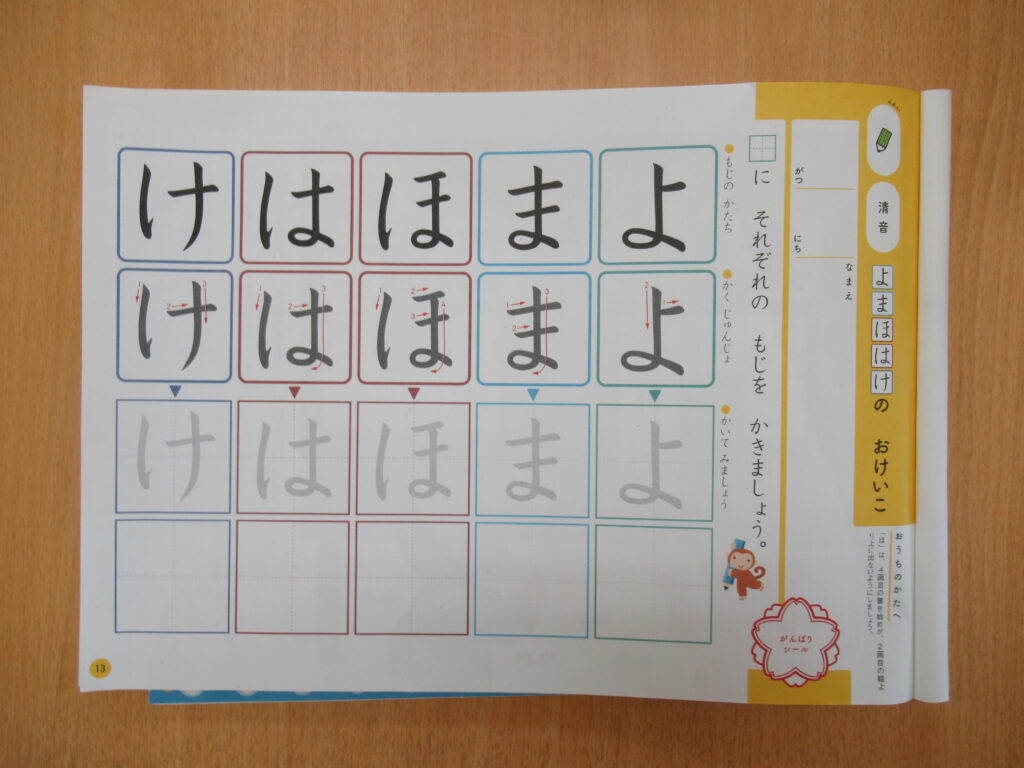 清音
よまほはけの おけいこ
おうちのかたへ
「ほ」は、4画目の書き始めが、2画目の線よ
り上に出ないようにしましょう。
がつ
にち
なまえ
がんばり
シール
に それぞれの もじを かきましょう。
もじの かたち
かく じゅんじょ
かいて みましょう
よ
ま
ほ
は
け
1
2
よ
1
2
3
ま
1
2
3
4
ほ
1
2
3
は
1
2
3
け
よ
ま
ほ
は
け
13